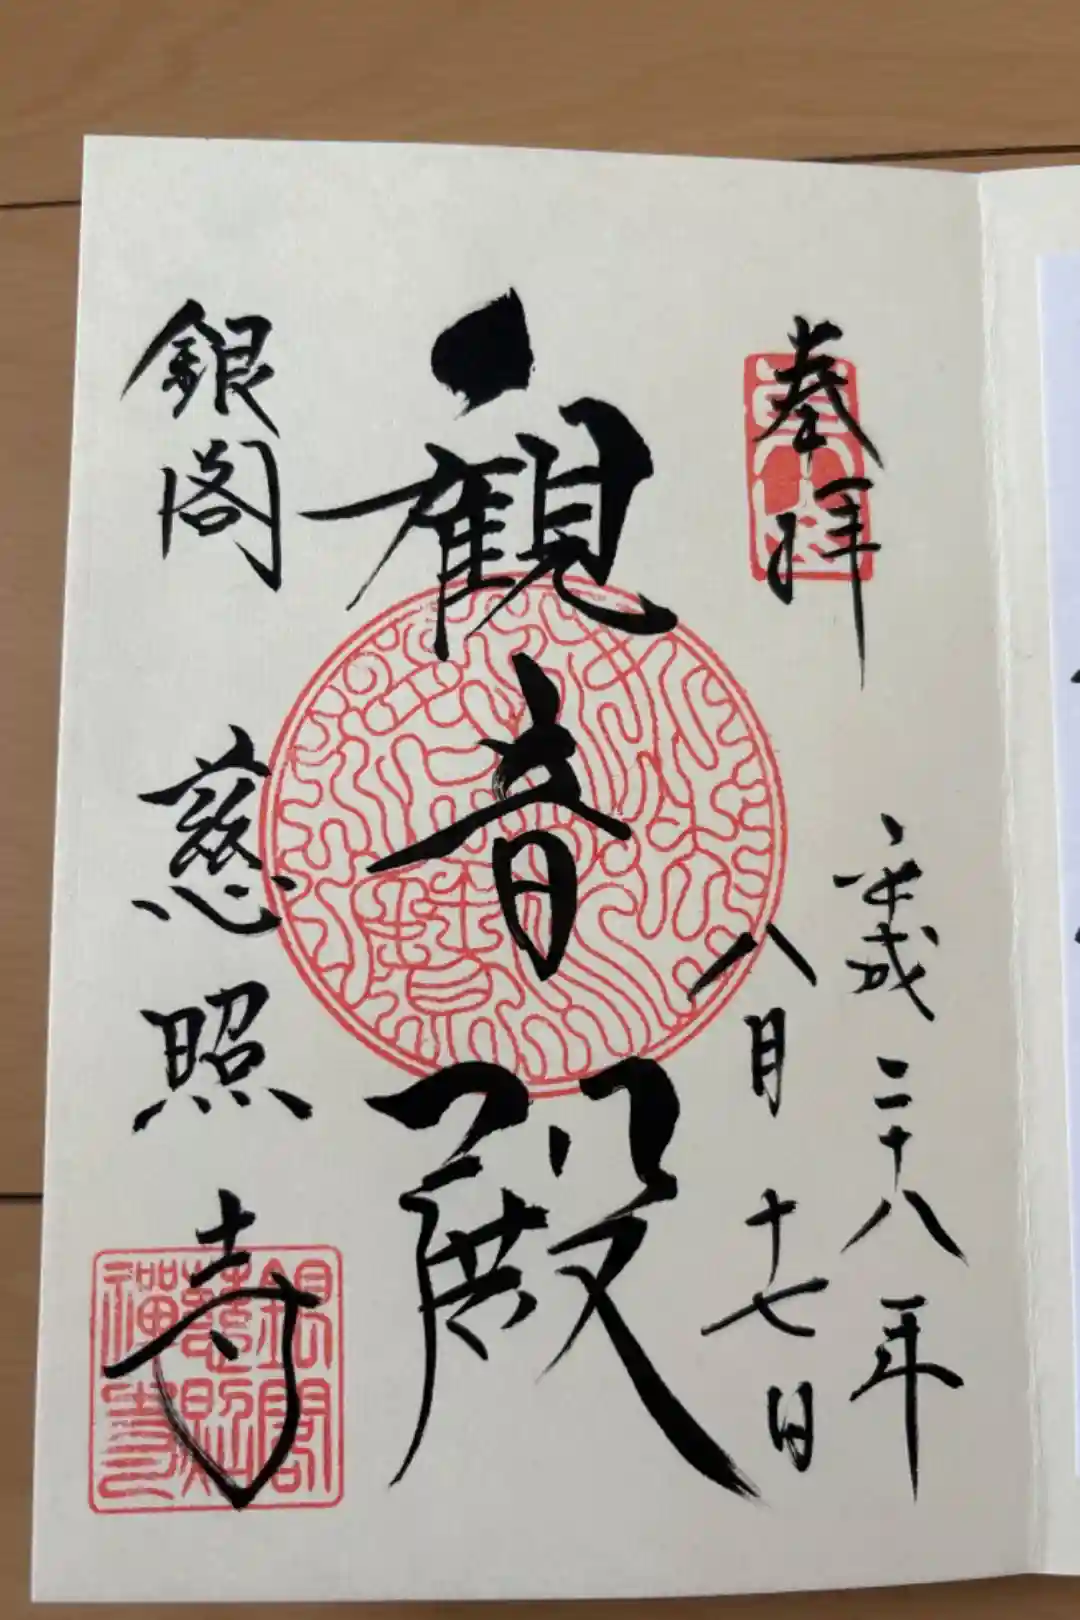 奉拝
平成二十八年
八月十七日
観音殿
銀閣 慈照寺
銀閣
慈照
禅寺